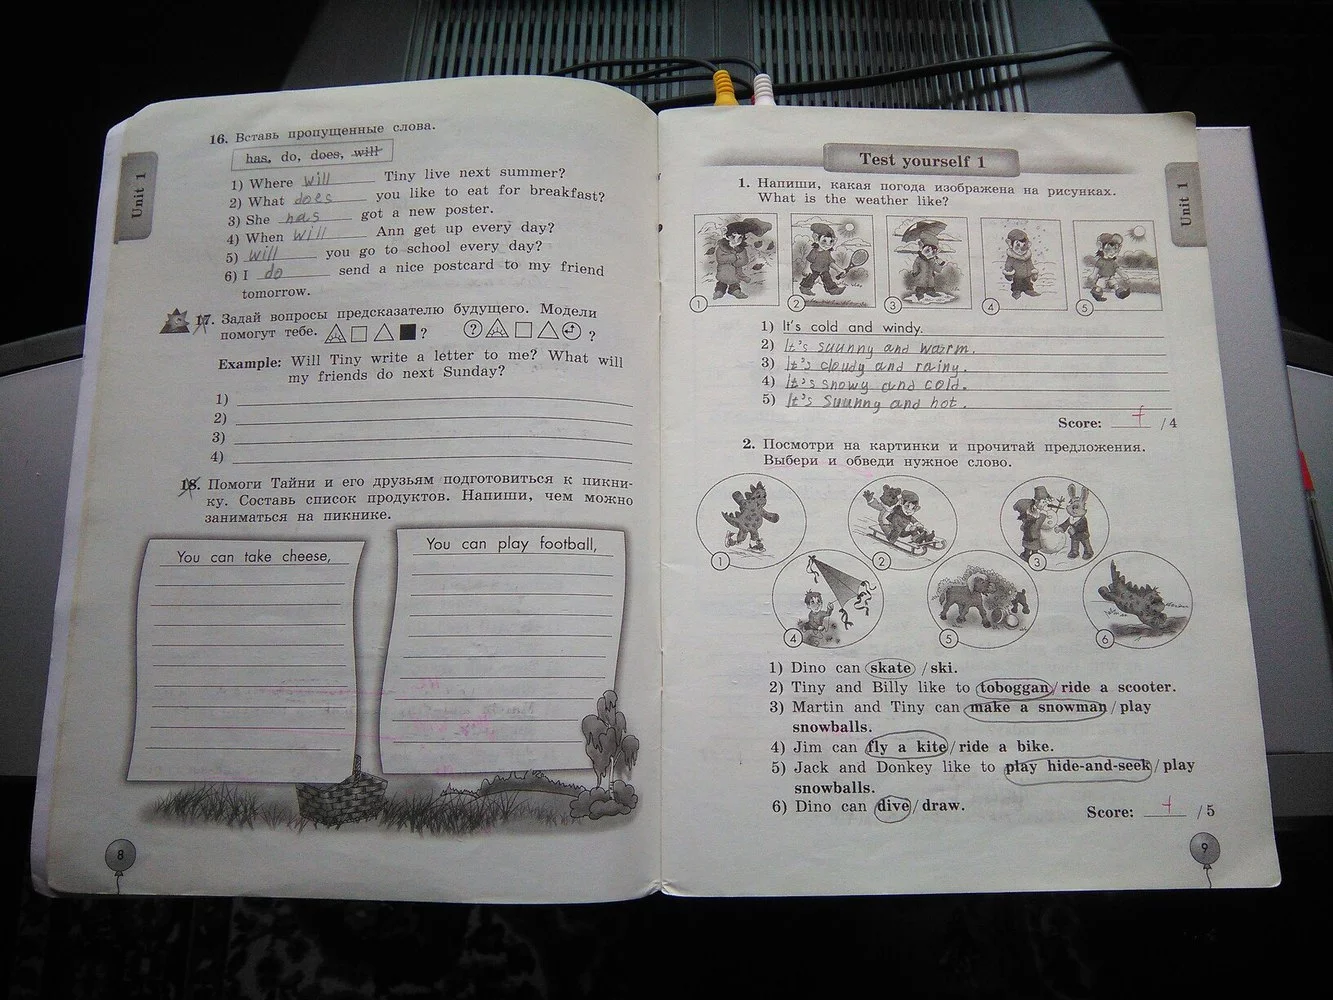 Unit 1
16. Вставь пропущенные слова.
has, do, does, will
1) Where will Tiny live next summer?
2) What does you like to eat for breakfast?
3) She has got a new poster.
4) When will Ann get up every day?
5) will you go to school every day?
6) I do send a nice postcard to my friend
tomorrow.
17. Задай вопросы предсказателю будущего. Модели
помогут тебе. ? ? ?
Example: Will Tiny write a letter to me? What will
my friends do next Sunday?
1)
2)
3)
4)
18. Помоги Тайни и его друзьям подготовиться к пикни-
ку. Составь список продуктов. Напиши, чем можно
заниматься на пикнике.
You can take cheese,
You can play football,
8
Test yourself 1
Unit 1
1. Напиши, какая погода изображена на рисунках.
What is the weather like?
1 2 3 4 5
1) It's cold and windy.
2) It's suunny and warm.
3) It's cloudy and rainy.
4) It's snowy and cold.
5) It's Suunny and hot.
Score: + / 4
2. Посмотри на картинки и прочитай предложения.
Выбери и обведи нужное слово.
1 2 3
4 5 6
1) Dino can skate / ski.
2) Tiny and Billy like to toboggan / ride a scooter.
3) Martin and Tiny can make a snowman / play
snowballs.
4) Jim can fly a kite / ride a bike.
5) Jack and Donkey like to play hide-and-seek / play
snowballs.
6) Dino can dive / draw.
Score: + / 5
9